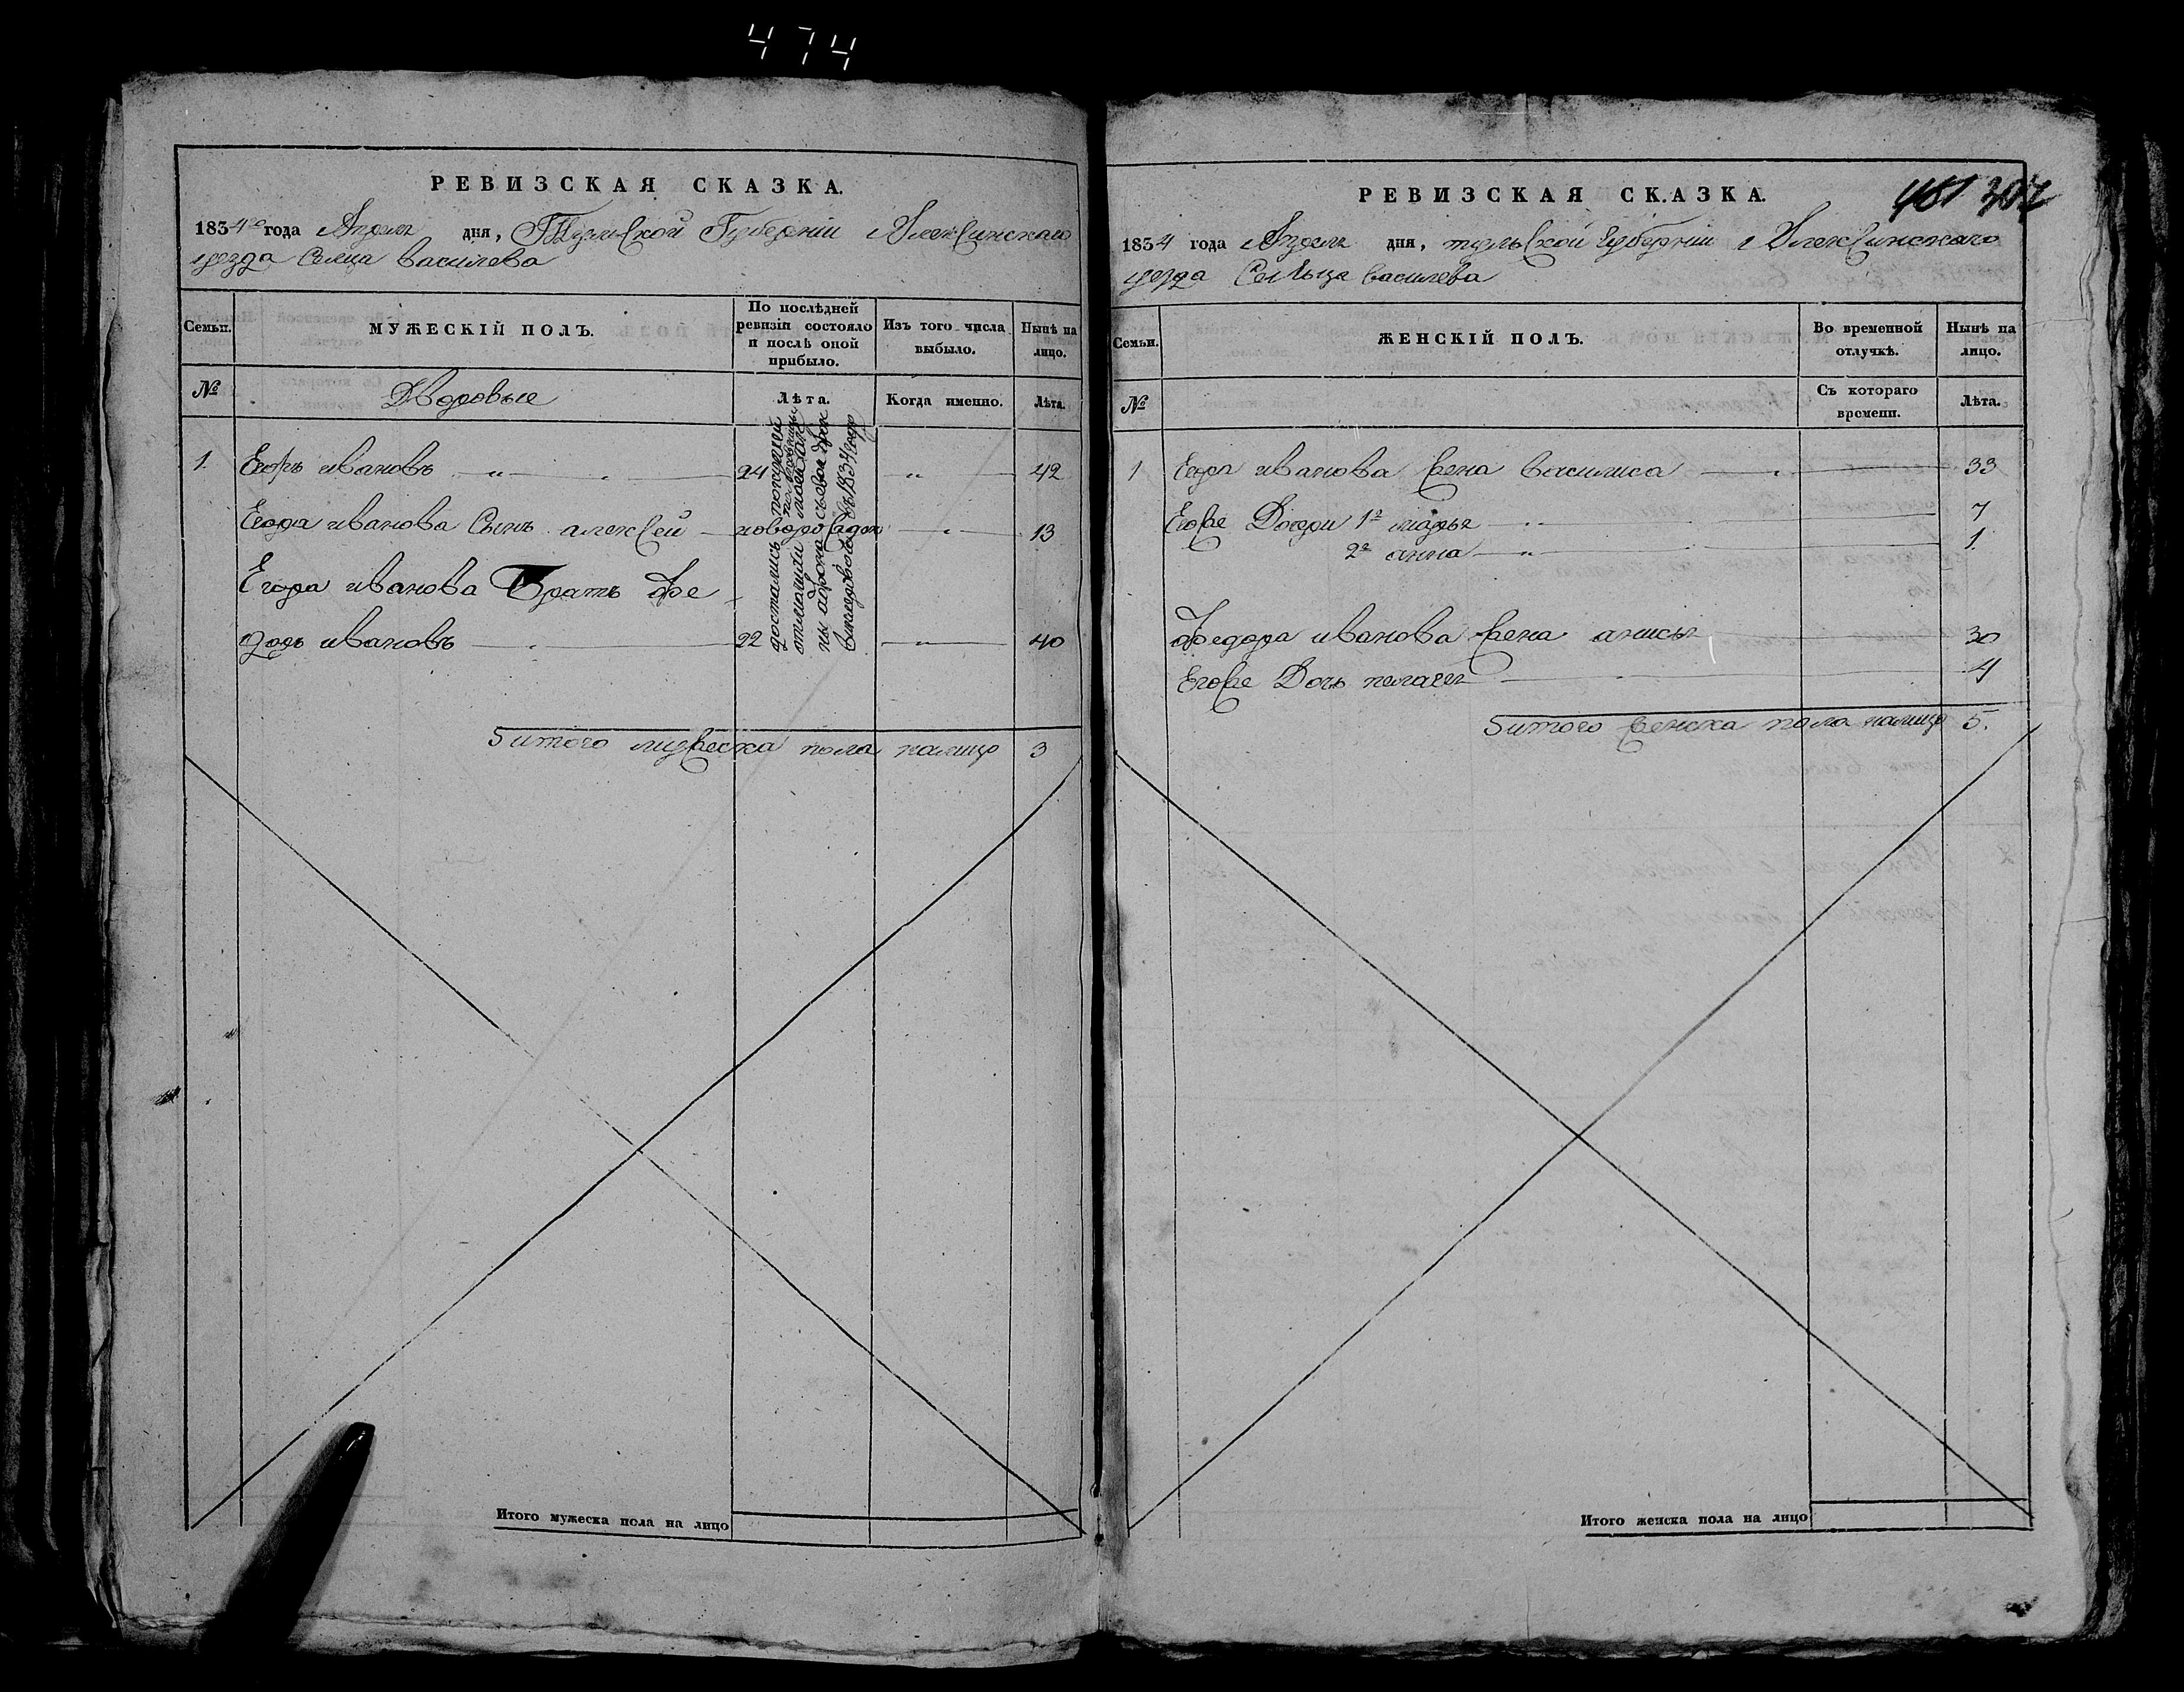 474
РЕВИЗСКАЯ СКАЗКА.
1834го года Апреля дня, Тульской Губернии Алексинскаго
уезда Селца Василева
Семьи.
МУЖЕСКІЙ ПОЛЪ.
По послѣдней ревизіи состояло и послѣ оной прибыло.
Изъ того числа выбыло.
Нынѣ на лицо.
№
Дворовые
Лѣта.
Когда именно.
Лѣта.
1. Егоръ ивановъ 24 42
Егора иванова Сынъ алексей новорожден 13
Егора иванова Братъ Фе
доръ ивановъ 22 40
достались
в 1834 году
итого мужеска пола налицо 3
Итого мужеска пола на лицо
РЕВИЗСКАЯ СКАЗКА.
401 307
1834 года Апреля дня, тульской губернии Алексинскаго
уезда Сельца василева
Семьи.
ЖЕНСКІЙ ПОЛЪ.
Во временной отлучкѣ.
Нынѣ на лицо.
№
Съ котораго времени.
Лѣта.
1 Егора иванова жена василиса 33
Егоже Дочери 1я марья 7
2я анна 1
Федора иванова жена анисья 30
Егоже Дочь пелагея 4
итого женска пола налицо 5.
Итого женска пола на лицо